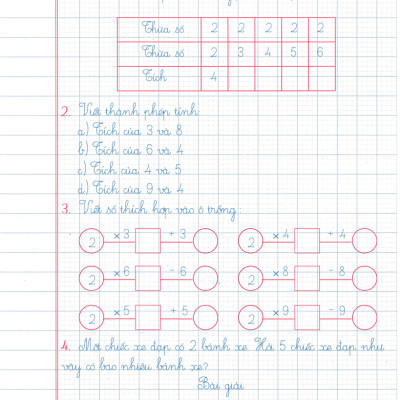 Thừa số 2 2 2 2 2
Thừa số 2 3 4 5 6
Tích 4
2. Viết thành phép tính:
a) Tích của 3 và 8
b) Tích của 6 và 4
c) Tích của 4 và 5
d) Tích của 9 và 4
3. Viết số thích hợp vào ô trống:
2 ×3 +3 2 ×4 +4
2 ×6 -6 2 ×8 -8
2 ×5 +5 2 ×9 -9
4. Một chiếc xe đạp có 2 bánh xe. Hỏi 5 chiếc xe đạp như
vậy có bao nhiêu bánh xe?
Bài giải